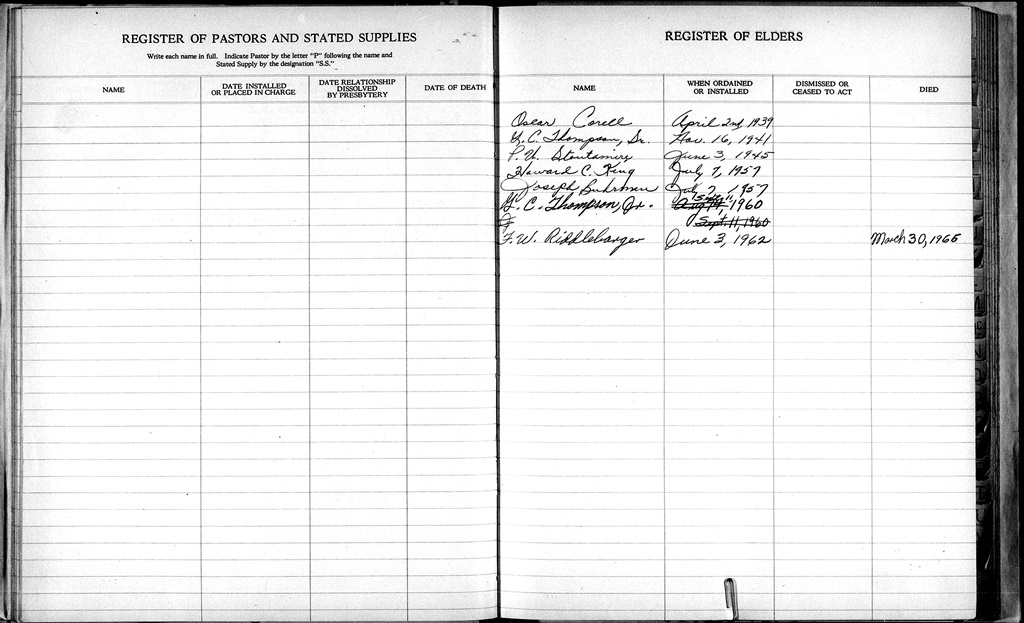 REGISTER OF PASTORS AND STATED SUPPLIES
Write each name in full. Indicate Pastor by the letter "P" following the name and
Stated Supply by the designation "S.S."
NAME
DATE INSTALLED
OR PLACED IN CHARGE
DATE RELATIONSHIP
DISSOLVED
BY PRESBYTERY
DATE OF DEATH
REGISTER OF ELDERS
NAME
WHEN ORDAINED
OR INSTALLED
DISMISSED OR
CEASED TO ACT
DIED
Oscar Corell April 2nd, 1939
C. Thompson, Sr. Nov. 16, 1941
P. H. June 3, 1945
Howard C. King July 7, 1957
Joseph Buhrman July 7, 1957
C. Thompson, Jr. Sept. 11, 1960
Sept. 11, 1960
F. W. Riddlebarger June 3, 1962 March 30, 1965